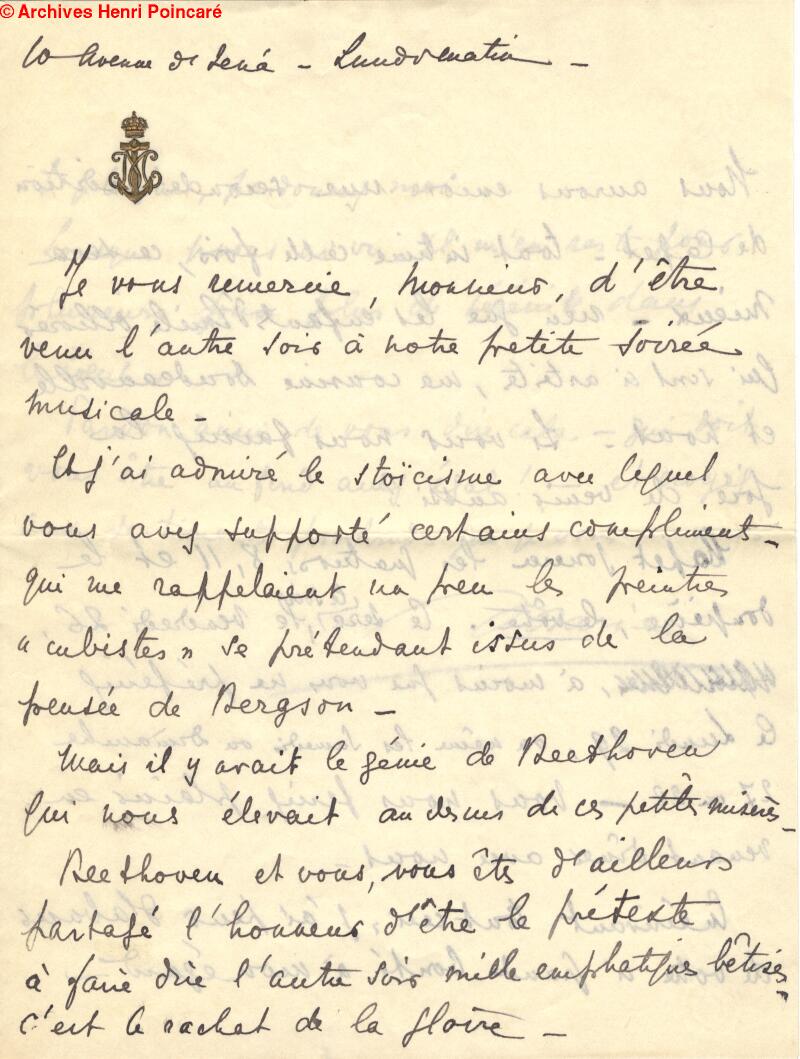 © Archives Henri Poincaré
10 Avenue de Iéna – Lundi matin –
Je vous remercie, Monsieur, d'être
venu l'autre soir à notre petite soirée
musicale –
Et j'ai admiré le stoïcisme avec lequel
vous avez supporté certains compliments
qui me rappelaient un peu les peintres
"cubistes" se prétendant issus de la
pensée de Bergson –
Mais il y avait le génie de Beethoven
qui nous élevait au dessus de ces petites misères –
Beethoven et vous, vous êtes d'ailleurs
partagé l'honneur d'être le prétexte
à faire dire l'autre soir mille emphatiques bêtises –
c'est le rachat de la gloire –